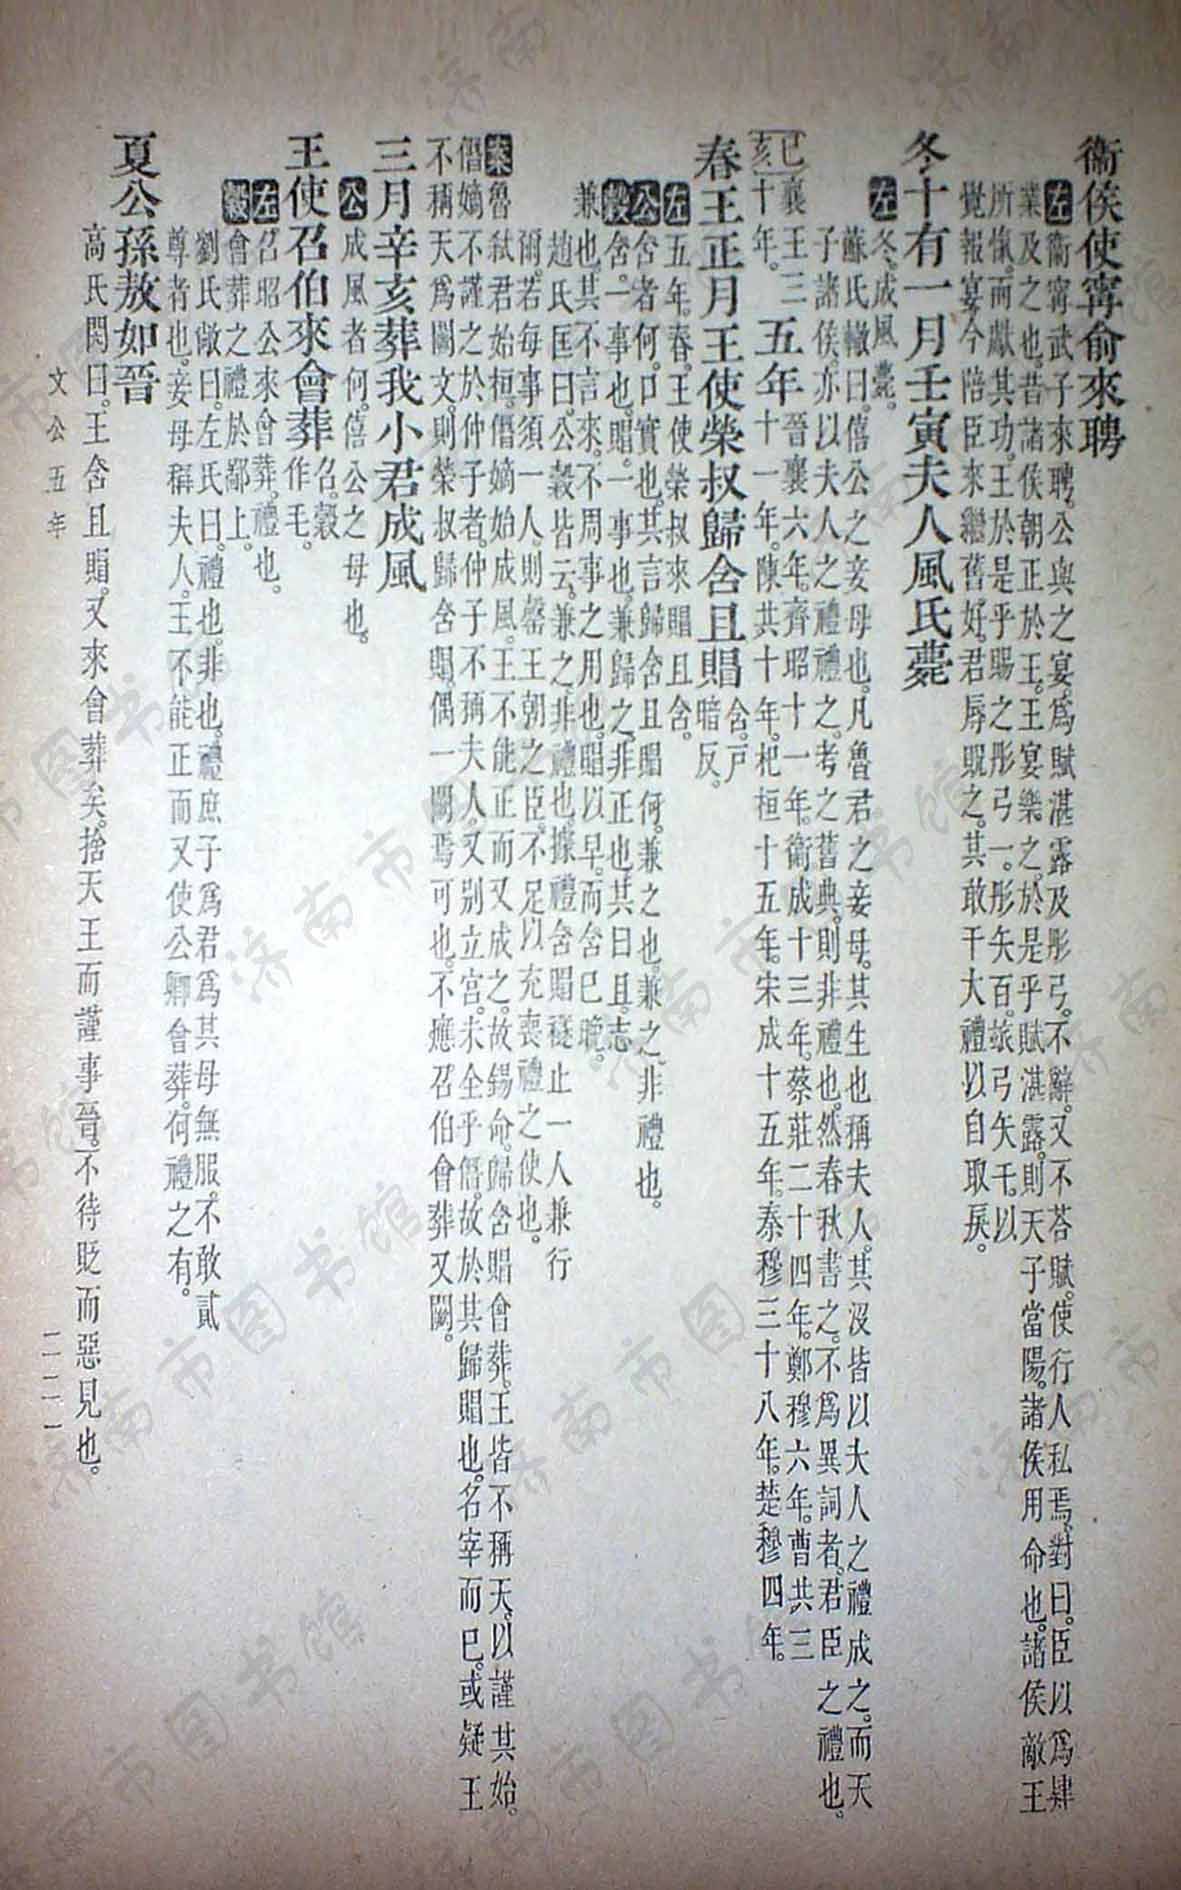 衞侯使甯俞來聘
左衞甯武子來聘。公與之宴。爲賦湛露及彤弓。不辭。又不荅賦。使行人私焉。對曰。臣以爲肄
業及之也。昔諸侯朝正於王。王宴樂之。於是乎賦湛露。則天子當陽。諸侯用命也。諸侯敵王
所愾。而獻其功。王於是乎賜之彤弓一。彤矢百。玈弓矢千。以
覺報宴。今陪臣來繼舊好。君辱貺之。其敢干大禮以自取戾。
冬十有一月壬寅夫人風氏薨
左冬。成風薨。
蘇氏轍曰。僖公之妾母也。凡魯君之妾母。其生也稱夫人。其沒皆以夫人之禮成之。而天
子諸侯。亦以夫人之禮禮之。考之舊典。則非禮也。然春秋書之。不爲異詞者。君臣之禮也。
己亥襄王三十年。五年晉襄六年。齊昭十一年。衞成十三年。蔡莊二十四年。鄭穆六年。曹共三
十一年。陳共十年。杞桓十五年。宋成十五年。秦穆三十八年。楚穆四年。
春王正月王使榮叔歸含且賵含。戶暗反。
左五年。春。王使榮叔來賵且含。
公含者何。口實也。其言歸含且賵何。兼之也。兼之。非禮也。
穀含。一事也。賵。一事也。兼歸之。非正也。其曰且。志
兼也。其不言來。不周事之用也。賵以早。而含已晚。
趙氏匡曰。公穀皆云。兼之。非禮也。據禮含賵襚止一人兼行
爾。若每事須一人。則罄王朝之臣。不足以充喪禮之使也。
案魯弑君始桓。僭嫡始成風。王不能正而又成之。故錫命。歸含賵會葬。王皆不稱天。以謹其始。
僭嫡不謹之於仲子者。仲子不稱夫人。又別立宮。未全乎僭。故於其歸賵也。名宰而已。或疑王
不稱天爲闕文。則榮叔歸含賵。偶一闕焉可也。不應召伯會葬又闕。
三月辛亥葬我小君成風
公成風者何。僖公之母也。
王使召伯來會葬召。穀作毛。
左召昭公來會葬。禮也。
穀會葬之禮於鄙上。
劉氏敞曰。左氏曰。禮也。非也。禮庶子爲君爲其母無服。不敢貳
尊者也。妾母稱夫人。王不能正而又使公卿會葬。何禮之有。
夏公孫敖如晉
高氏閌曰。王含且賵。又來會葬矣。捨天王而謹事晉。不待貶而惡見也。
文公五年